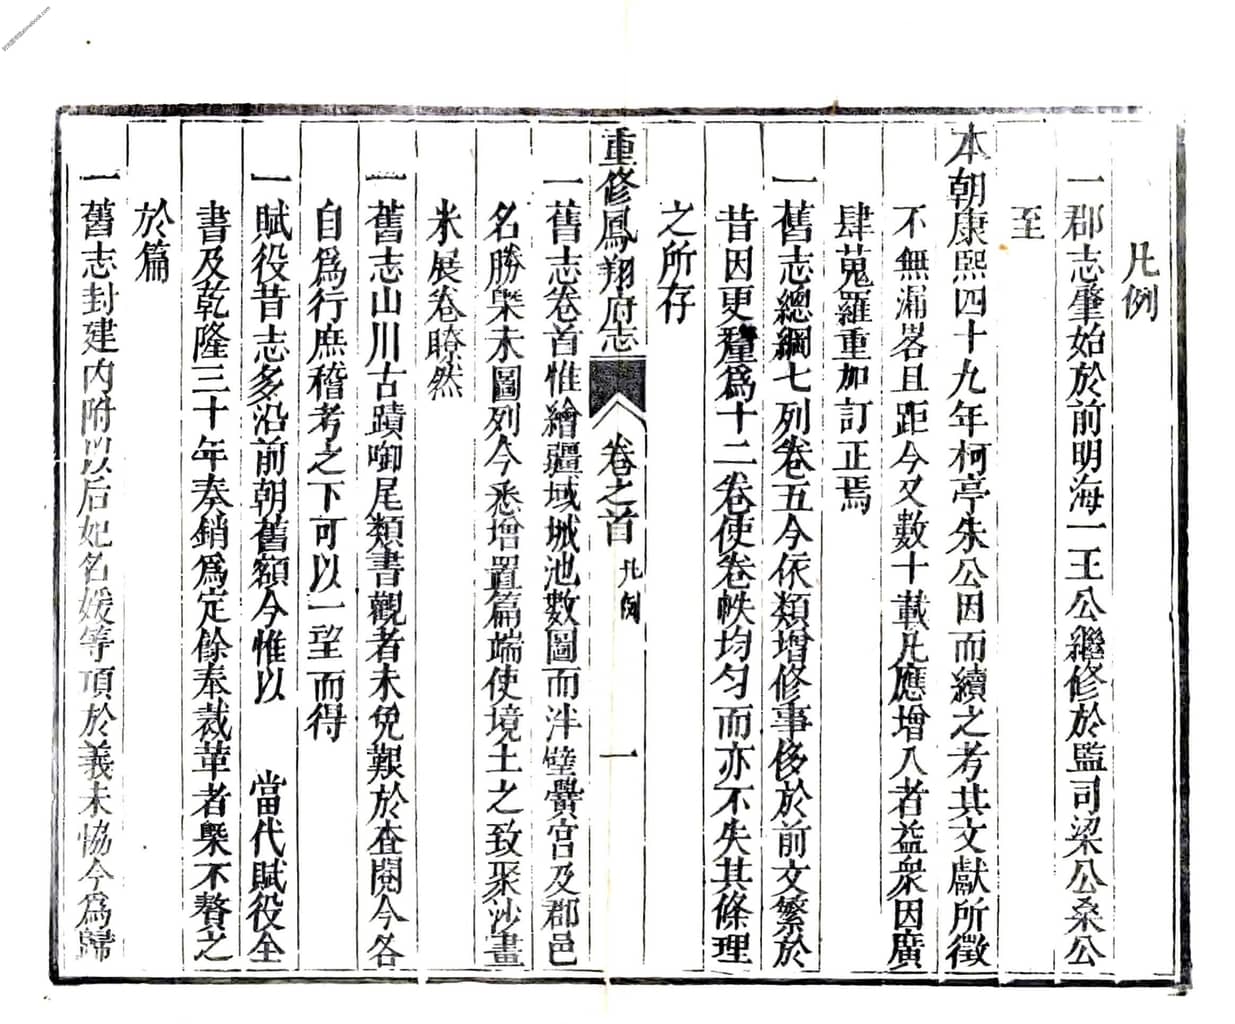 凡例
一郡志肇始於前明海一王公繼修於監司梁公桑公
至
本朝康熙四十九年柯亭朱公因而續之考其文獻所徵
不無漏畧且距今又數十載凡應增入者益衆因廣
肆蒐羅重加訂正焉
一舊志總綱七列卷五今依類增修事侈於前文繁於
昔因更釐爲十二卷使卷帙均勻而亦不失其條理
之所存
重修鳳翔府志 卷之首 凡例 一
一舊志卷首惟繪疆域城池數圖而泮璧黌宮及郡邑
名勝槩未圖列今悉增置篇端使境土之致聚沙畫
米展卷瞭然
一舊志山川古蹟啣尾類書觀者未免艱於查閱今各
自爲行庶稽考之下可以一望而得
一賦役昔志多沿前朝舊額今惟以 當代賦役全
書及乾隆三十年奏銷爲定餘奉裁革者槩不贅之
於篇
一舊志封建内附以后妃名媛等項於義未協今爲歸